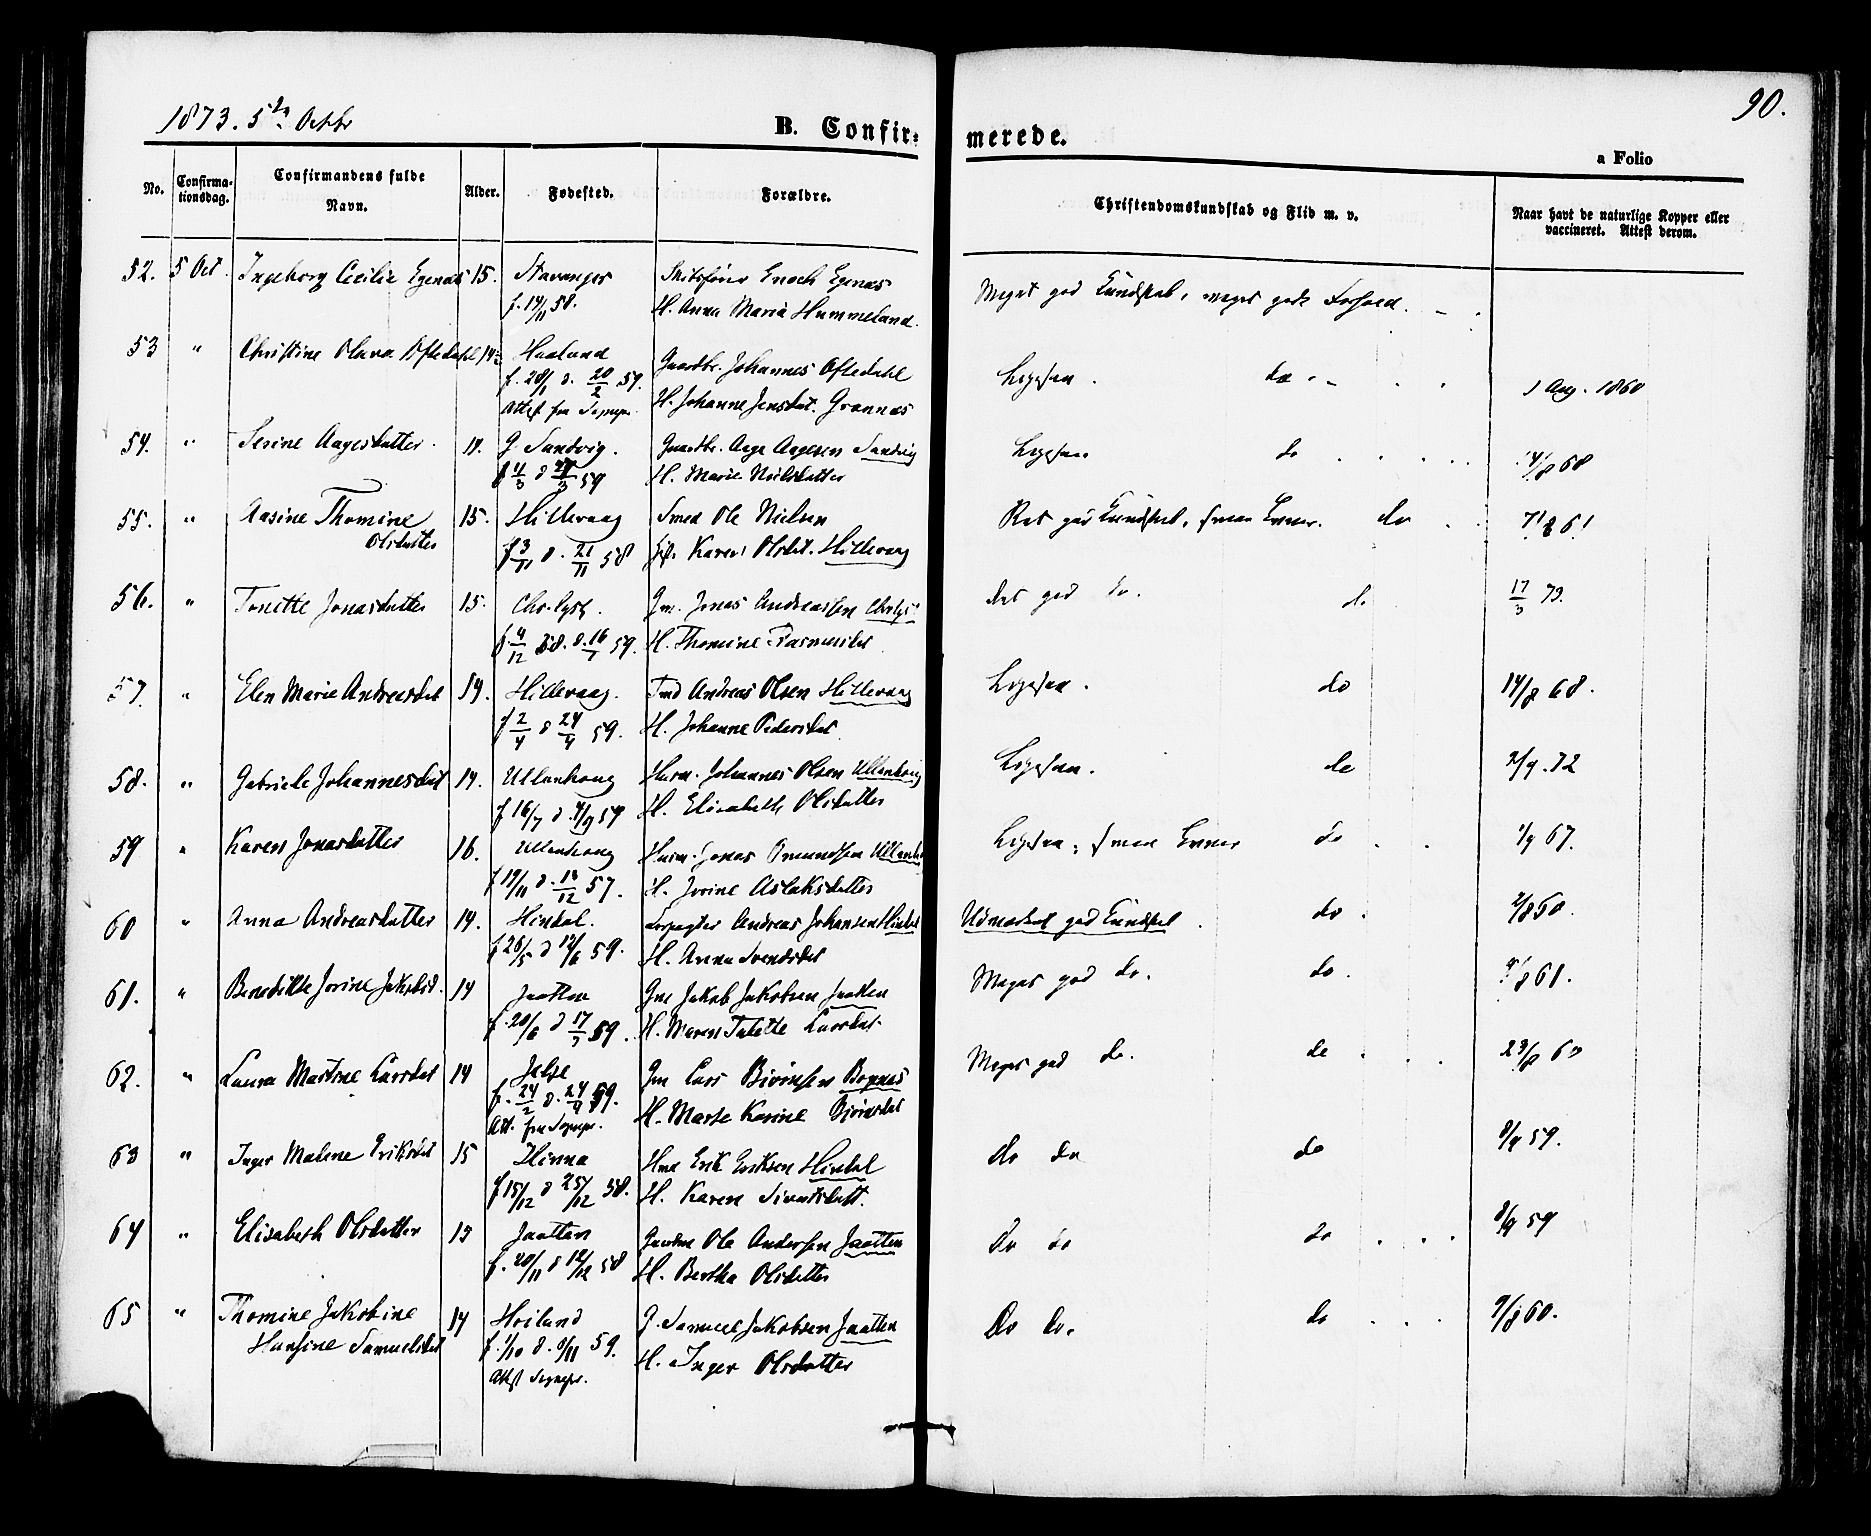 1873. 5te Octbr
B. Confirmerede.
90.
a Folio
No. Confirmationsdag. Confirmandens fulde Navn. Alder. Fødested. Forældre. Christendomskundskab og Flid m. v. Naar havt de naturlige Kopper eller vaccineret. Attest derom.
52. 5 Oct. Ingeborg Cecilie Egenæs 15. Stavanger Enoch Egenæs Meget god Kundskab, meget godt Forhold.
f. 14/11 58. H. Anna Maria Hummeland.
53 " Christine Olava Oftedahl Haaland Gaardbr. Johannes Oftedahl Ligesaa. do 1 Aug. 1860
f. 28/1 d. 20/2 59. H. Johanne Jensdat. Grannæs
Attest fra Sognepr.
54. " Serine Aagesdatter. G. Sandvig. Gaardbr. Aage Aagesen Sandvig Ligesaa do
59 H. Marie Nielsdatter
55. " Aasine Thomine 15. Hillevaag Smed Ole Nielsen god Kundskab, smaa Evner. do
Olsdatter f 3/11 d. 21/11 58 Karen Olsdat. Hillevaag
56. " Tonette Jonasdatter 15. Gm. Jonas Andreassen god do. do 17/3 73.
f. 4/12 58. d. 16/1 59. H. Thomine Rasmusdat
57. " Elen Marie Andreasdat 14. Hillevaag. Andreas Olsen Hillevaag Ligesaa. do 14/8 68.
f 2/4 d 24/4 59. H. Johanne Pedersdat
58. " Gabriele Johannesdat 14. Ullenhaug Husm. Johannes Olsen Ullenhaug Ligesaa. do 2/9. 72
f 16/7 d. 4/9 59 H. Elisabeth Olsdatter
59 " Karen Jonasdatter 16. Ullenhaug Husm. Jonas Omundsen Ligesaa, smaa Evner do 67.
f 19/11 d. 13/12 57. H. Jorine Aslaksdatter
60 " Anna Andreasdatter 14. Hindal. Forpagter Andreas Johansen Hindal Udmærket god Kundskab. do.
f 26/5 d 12/6 59. H. Anna Svendsdat
61. " Benedikte Jorine Jakobsd. 14 Jaatten Gm Jakob Jakobsen Jaatten Meget god do. do. 61.
f. 20/6 d 17/7 59. H. Maren Tabette Larsdat.
62. " Laura Martine Larsdat 14 Jelse Gm Lars Bjørnsen Bognæs Meget god do. do
f. 24/2 d. 24/4 59. H. Marte Karine Bjørnsdat
Att. fra Sognepr.
63 " Inger Malene Eriksdat 15 Hinna Hm Erik Eriksen Hindal do do do 8/9 59.
f 15/12 d 25/12 58. H. Karen Sivertsdatt.
64 " Elisabeth Olsdatter 15 Jaatten Gaardm Ole Andersen Jaatten Do do do 8/9 59
f. 20/11 d 12/12 58 H. Bertha Olsdatter
65 " Thomine Jakobine 14 Hoiland G. Samuel Jakobsen Jaatten Do do. do 9/8 60.
Hansine Samuelsdat f. 1/10 d. 6/11 59. H. Inger Olsdatter
Attest Sognepr.